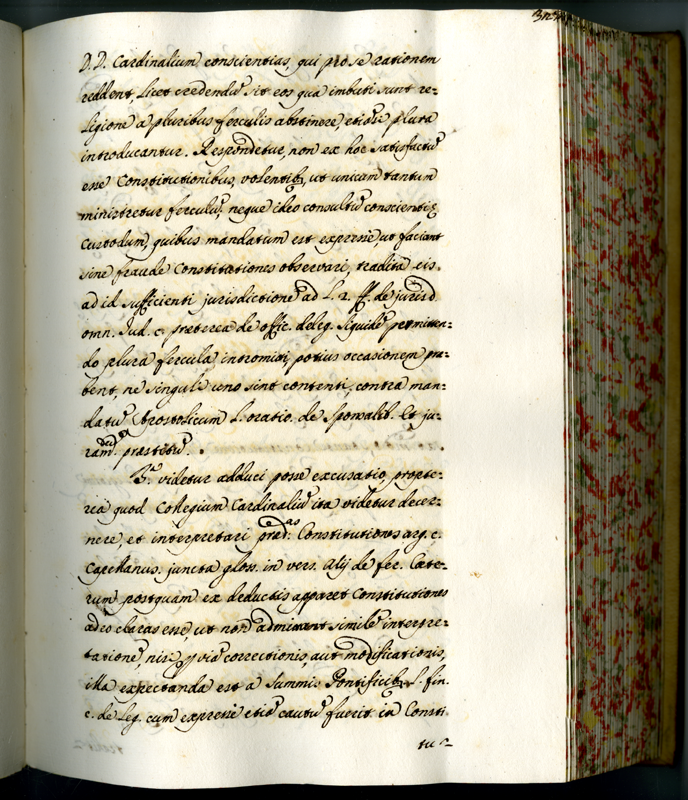 D. D. Cardinalium conscientias, qui pro se rationem
reddent, licet credendũ sit eos qua imbuti sunt re-
ligione a pluribus ferculis abstinere, etiãsi plura
introducantur. Respondetur, non ex hoc satisfactũ
esse Constitutionibus, volentibȝ, ut unicum tantum
ministretur ferculũ, neque ideo consultũ conscientijs
custodum, quibus mandatum est expresse, ut faciant
sine fraude Constitutiones observari, tradita eis
ad id sufficienti jurisdictione ad L. 2. ff. de jurisd.
omn. Jud. c. præterea de offic. deleg. siquidẽ permitten-
do plura fercula intromitti, potius occasionem præ-
bent, ne singuli uno sint contenti, contra man-
datũ Apostolicum L. oratio. de Sponsalib. et ju-
ram. præstitũ.
3.º videtur adduci posse excusatio, propte-
rea quod Collegium Cardinaliũ ita videtur decer-
nere, et interpretari præd.as Constitutiones arg. c.
Capellanus. juncta gloss. in vers. alij de fer. Cæte-
rum postquam ex deductis apparet Constitutiones
adeo claras esse, ut non admittant similẽ interpre-
tationẽ, nisi p viã correctionis, aut modificationis,
illa expectanda est a Summis Pontificibȝ L. fin.
c. de Leg. cum expresse etiã cautũ fuerit in Consti
tu